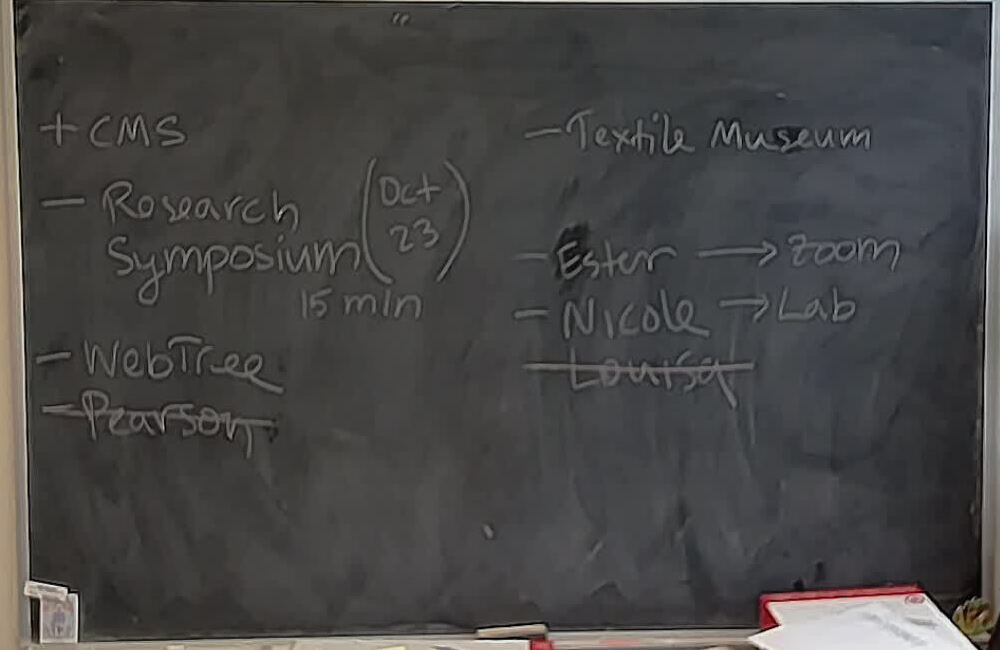 + CMS
- Research (Oct
Symposium 23)
15 min
- WebTree
- Pearson
- Textile Museum
- Ester → Zoom
- Nicole → Lab
- Louisa